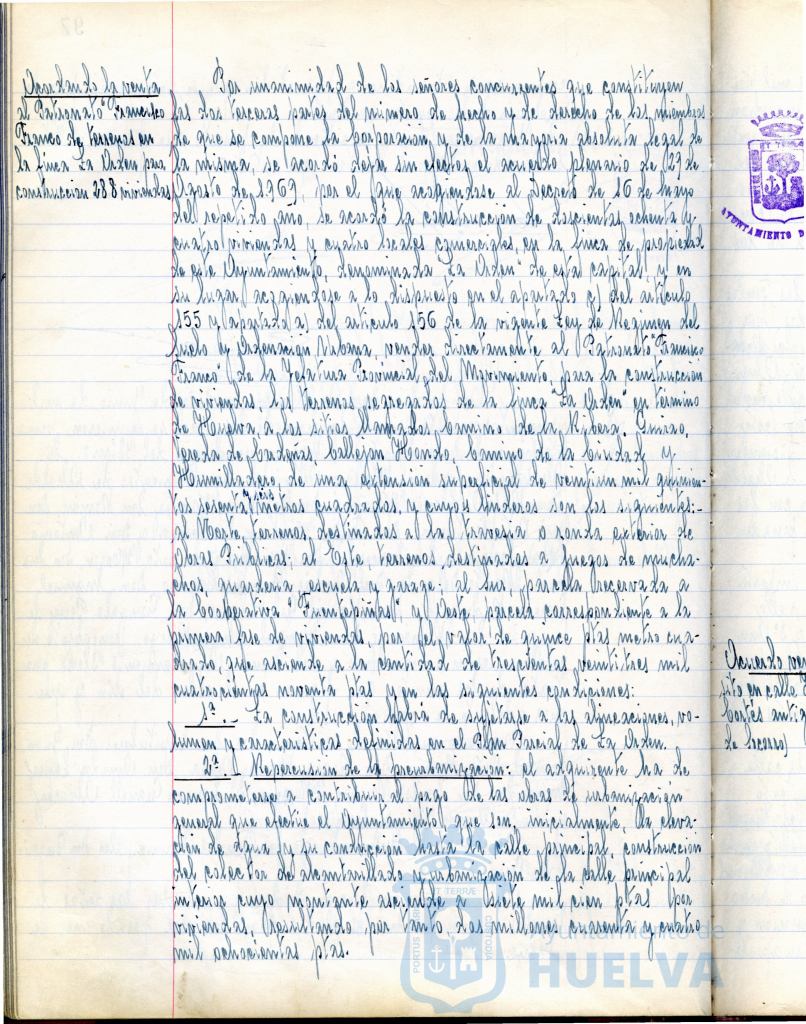 Acordando la venta
al Patronato Francisco
Franco de terrenos en
la finca La Orden para
construccion 288 viviendas
Por unanimidad de los señores concurrentes que constituyen
las dos terceras partes del número de hecho y de derecho de los miembros
de que se compone la Corporacion y de la mayoria absoluta legal de
la misma, se acordó dejar sin efecto el acuerdo plenario de 29 de
Agosto de 1969, por el que acogiendose al Decreto de 16 de mayo
del repetido año, se acordó la construccion de doscientas ochenta y
cuatro viviendas y cuatro locales comerciales, en la finca de propiedad
de este Ayuntamiento, denominada "La Orden" de esta capital, y en
su lugar, acogiendose a lo dispuesto en el apartado c) del articulo
155 y apartado a) del articulo 156 de la vigente Ley de Regimen del
Suelo y Ordenacion Urbana, vender directamente al Patronato "Francisco
Franco" de la Jefatura Provincial del Movimiento, para la construccion
de viviendas, los terrenos segregados de la finca "La Orden" en término
de Huelva, a los sitios llamados, Camino de la Ribera,
Vereda de Cardeñas, Callejon Hondo, Camino de la Ciudad y
Humilladero, de una extensión superficial de veintiun mil quinien-
tos sesenta y seis metros cuadrados, y cuyos linderos son los siguientes:-
al Norte, terrenos, destinados a la travesia o ronda exterior de
Obras Públicas; al Este, terrenos destinados a juegos de mucha-
chos, guarderia, escuela y garage; al Sur, parcela reservada a
la Cooperativa "Fuentepiñas", y Oeste, parcela correspondiente a la
primera fase de viviendas, por el valor de quince ptas metro cua-
drado, que asciende a la cantidad de trescientas veintitres mil
cuatrocientas noventa ptas y en las siguientes condiciones:
1ª.- La construccion habrá de sujetarse a las alineaciones, vo-
lumen y caracteristicas definidas en el Plan Parcial de La Orden.
2ª. Repercusion de la preurbanizacion: el adquirente ha de
comprometerse a contribuir al pago de las obras de urbanizacion
general que efectue el Ayuntamiento, que son, inicialmente, la eleva-
cion de agua y su conduccion hasta la calle principal, construccion
del colector de alcantarillado y urbanizacion de la calle principal
interior cuyo montante asciende a siete mil cien ptas por
viviendas, resultando, por tanto, dos millones cuarenta y cuatro
mil ochocientas ptas.
AYUNTAMIENTO D
Acuerdo ven
sito en calle
Cortés antig
de Socorro)
PORTUS MARIS ET TERRÆ CUSTODIA
Ayuntamiento de
HUELVA